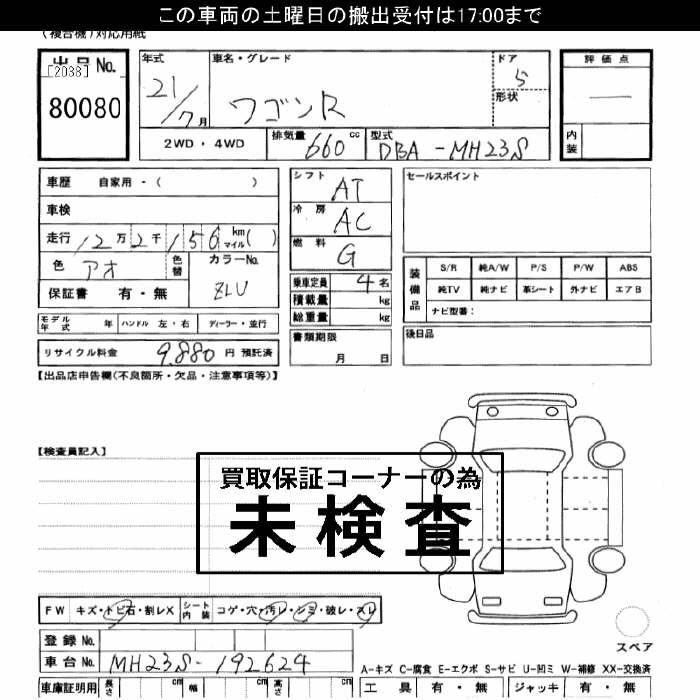 この車両の土曜日の搬出受付は17:00まで
(複合機)対応用紙
出品No.
[2038]
80080
年式
21/7月
車名・グレード
ワゴンR
ドア
5
形状
評価点
—
内装
2WD・4WD
排気量
660 cc
型式
DBA-MH23S
車歴 自家用・( )
車検
走行 12万2千156 km マイル( )
色 アオ
色替
カラーNo.
ZLU
保証書 有・無
シフト AT
冷房 AC
燃料 G
乗車定員 4名
積載量 kg
総重量 kg
セールスポイント
装備品
S/R 純A/W P/S P/W ABS
純TV 純ナビ 革シート 外ナビ エアB
ナビ型番:
モデル年式 年 ハンドル 左・右 ディーラー・並行
リサイクル料金 9,880 円 預託済
書類期限
月 日
後日品
【出品店申告欄(不良箇所・欠品・注意事項等)】
【検査員記入】
買取保証コーナーの為
未検査
FW キズ・トビ石・割レX
シート内装 コゲ・穴・汚レ・シミ・破レ・スレ
登録No.
車台No. MH23S-192624
スペア
A-キズ C-腐食 E-エクボ S-サビ U-凹ミ W-補修 XX-交換済
車庫証明用 長さ cm 幅 cm 高さ cm
工具 有・無 ジャッキ 有・無